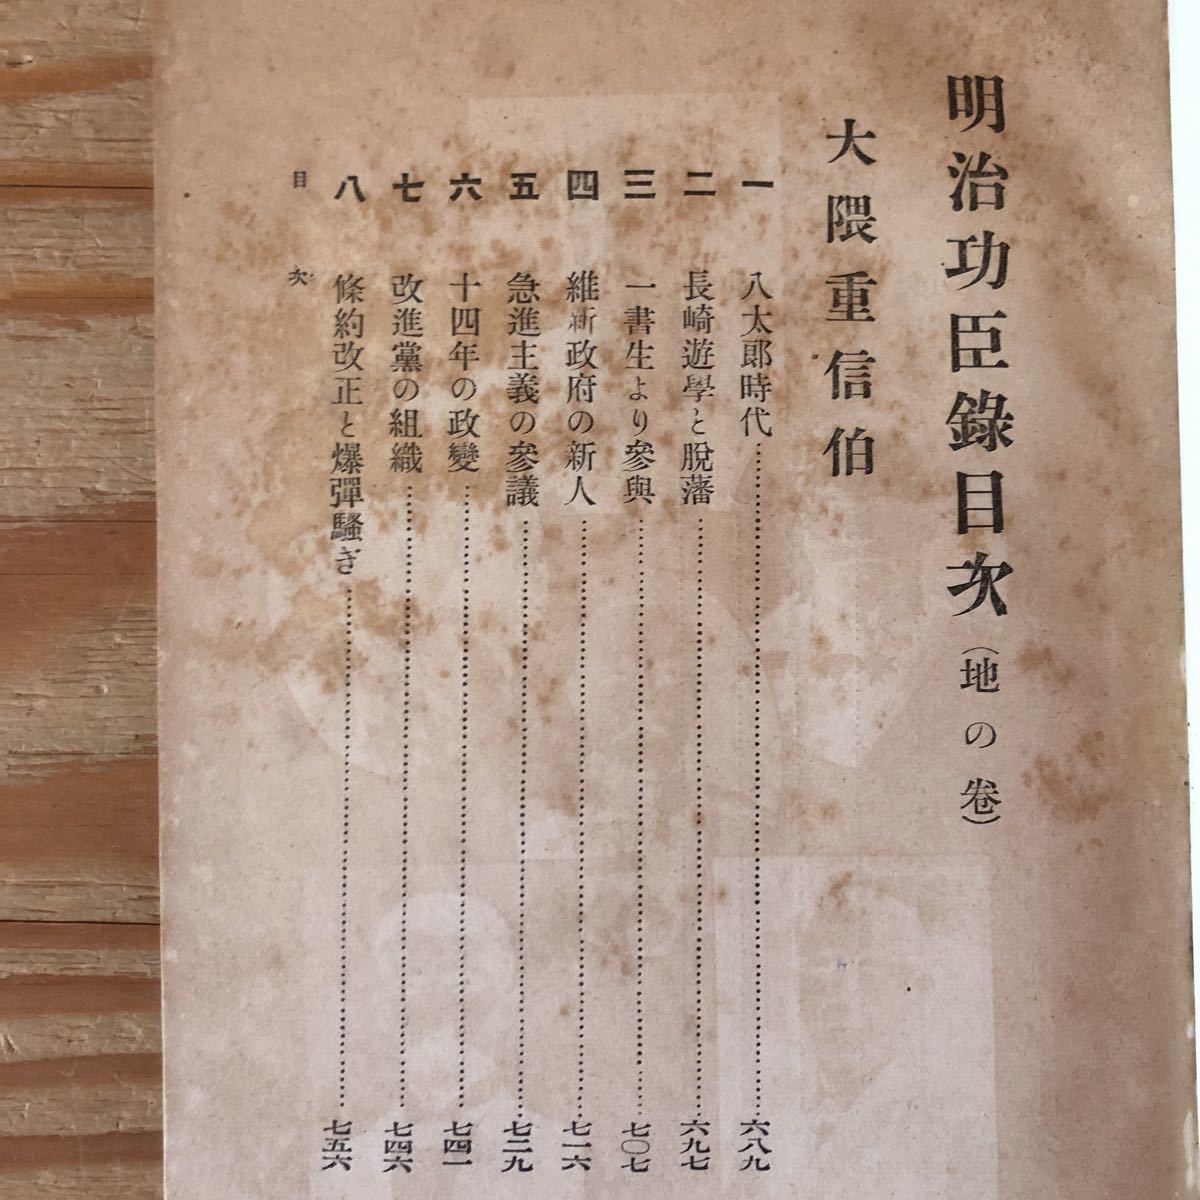 明治功臣錄目次(地の卷)
大隈重信伯
一 八太郞時代 六八九
二 長崎遊學と脫藩 六九七
三 一書生より參與 七〇七
四 維新政府の新人 七一六
五 急進主義の參議 七二九
六 十四年の政變 七四一
七 改進黨の組織 七四六
八 條約改正と爆彈騷ぎ 七五六
目次